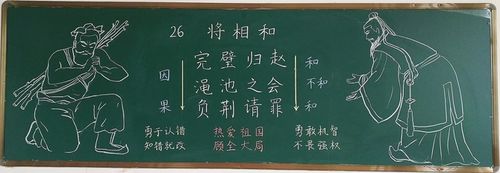 26 将相和
完璧归赵
渑池之会
负荆请罪
因
果
和
不和
和
勇于认错
知错就改
热爱祖国
顾全大局
勇敢机智
不畏强权